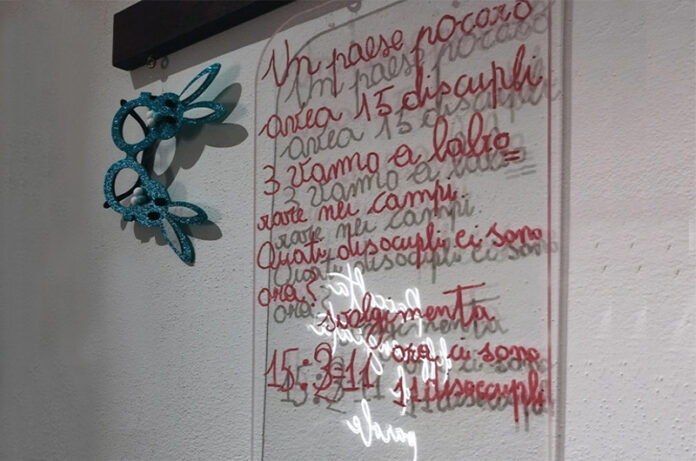 Un paese pocaro
avea 15 discupli
3 vanno a labo=
rare nei campi.
Quati disocupli ci sono
ora?
svolgimenta
15:3=11 ora ci sono
11 disocupli
parole